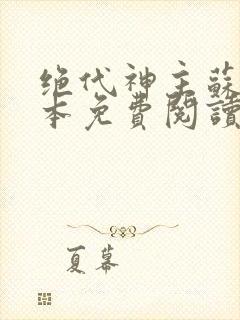 绝代神主蘇
本免費閱讀
夏幕